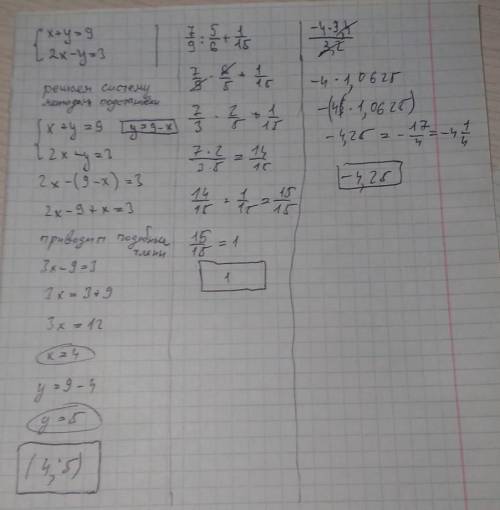 x+y=9
2x-y=3
решаем систему
методом подстановки
x+y=9 y=9-x
2x-y=3
2x-(9-x)=3
2x-9+x=3
приводим подобные
члены
3x-9=3
3x=3+9
3x=12
x=4
y=9-4
y=5
(4;5)
7/9 : 5/6 + 1/15
7/9 · 6/5 + 1/15
7/3 · 2/5 + 1/15
7·2/3·5 = 14/15
14/15 + 1/15 = 15/15
15/15 = 1
1
-4·3,4/3,2
-4·1,0625
-(4·1,0625)
-4,25 = -17/4 = -4 1/4
-4,25